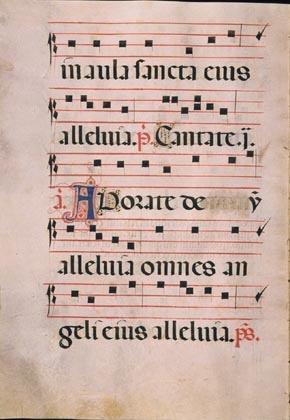 in aula sancta eius
alleluia. p̄. Cantate. ij.
a. ADorate de
alleluia omnes an
geli eius alleluia. ps.